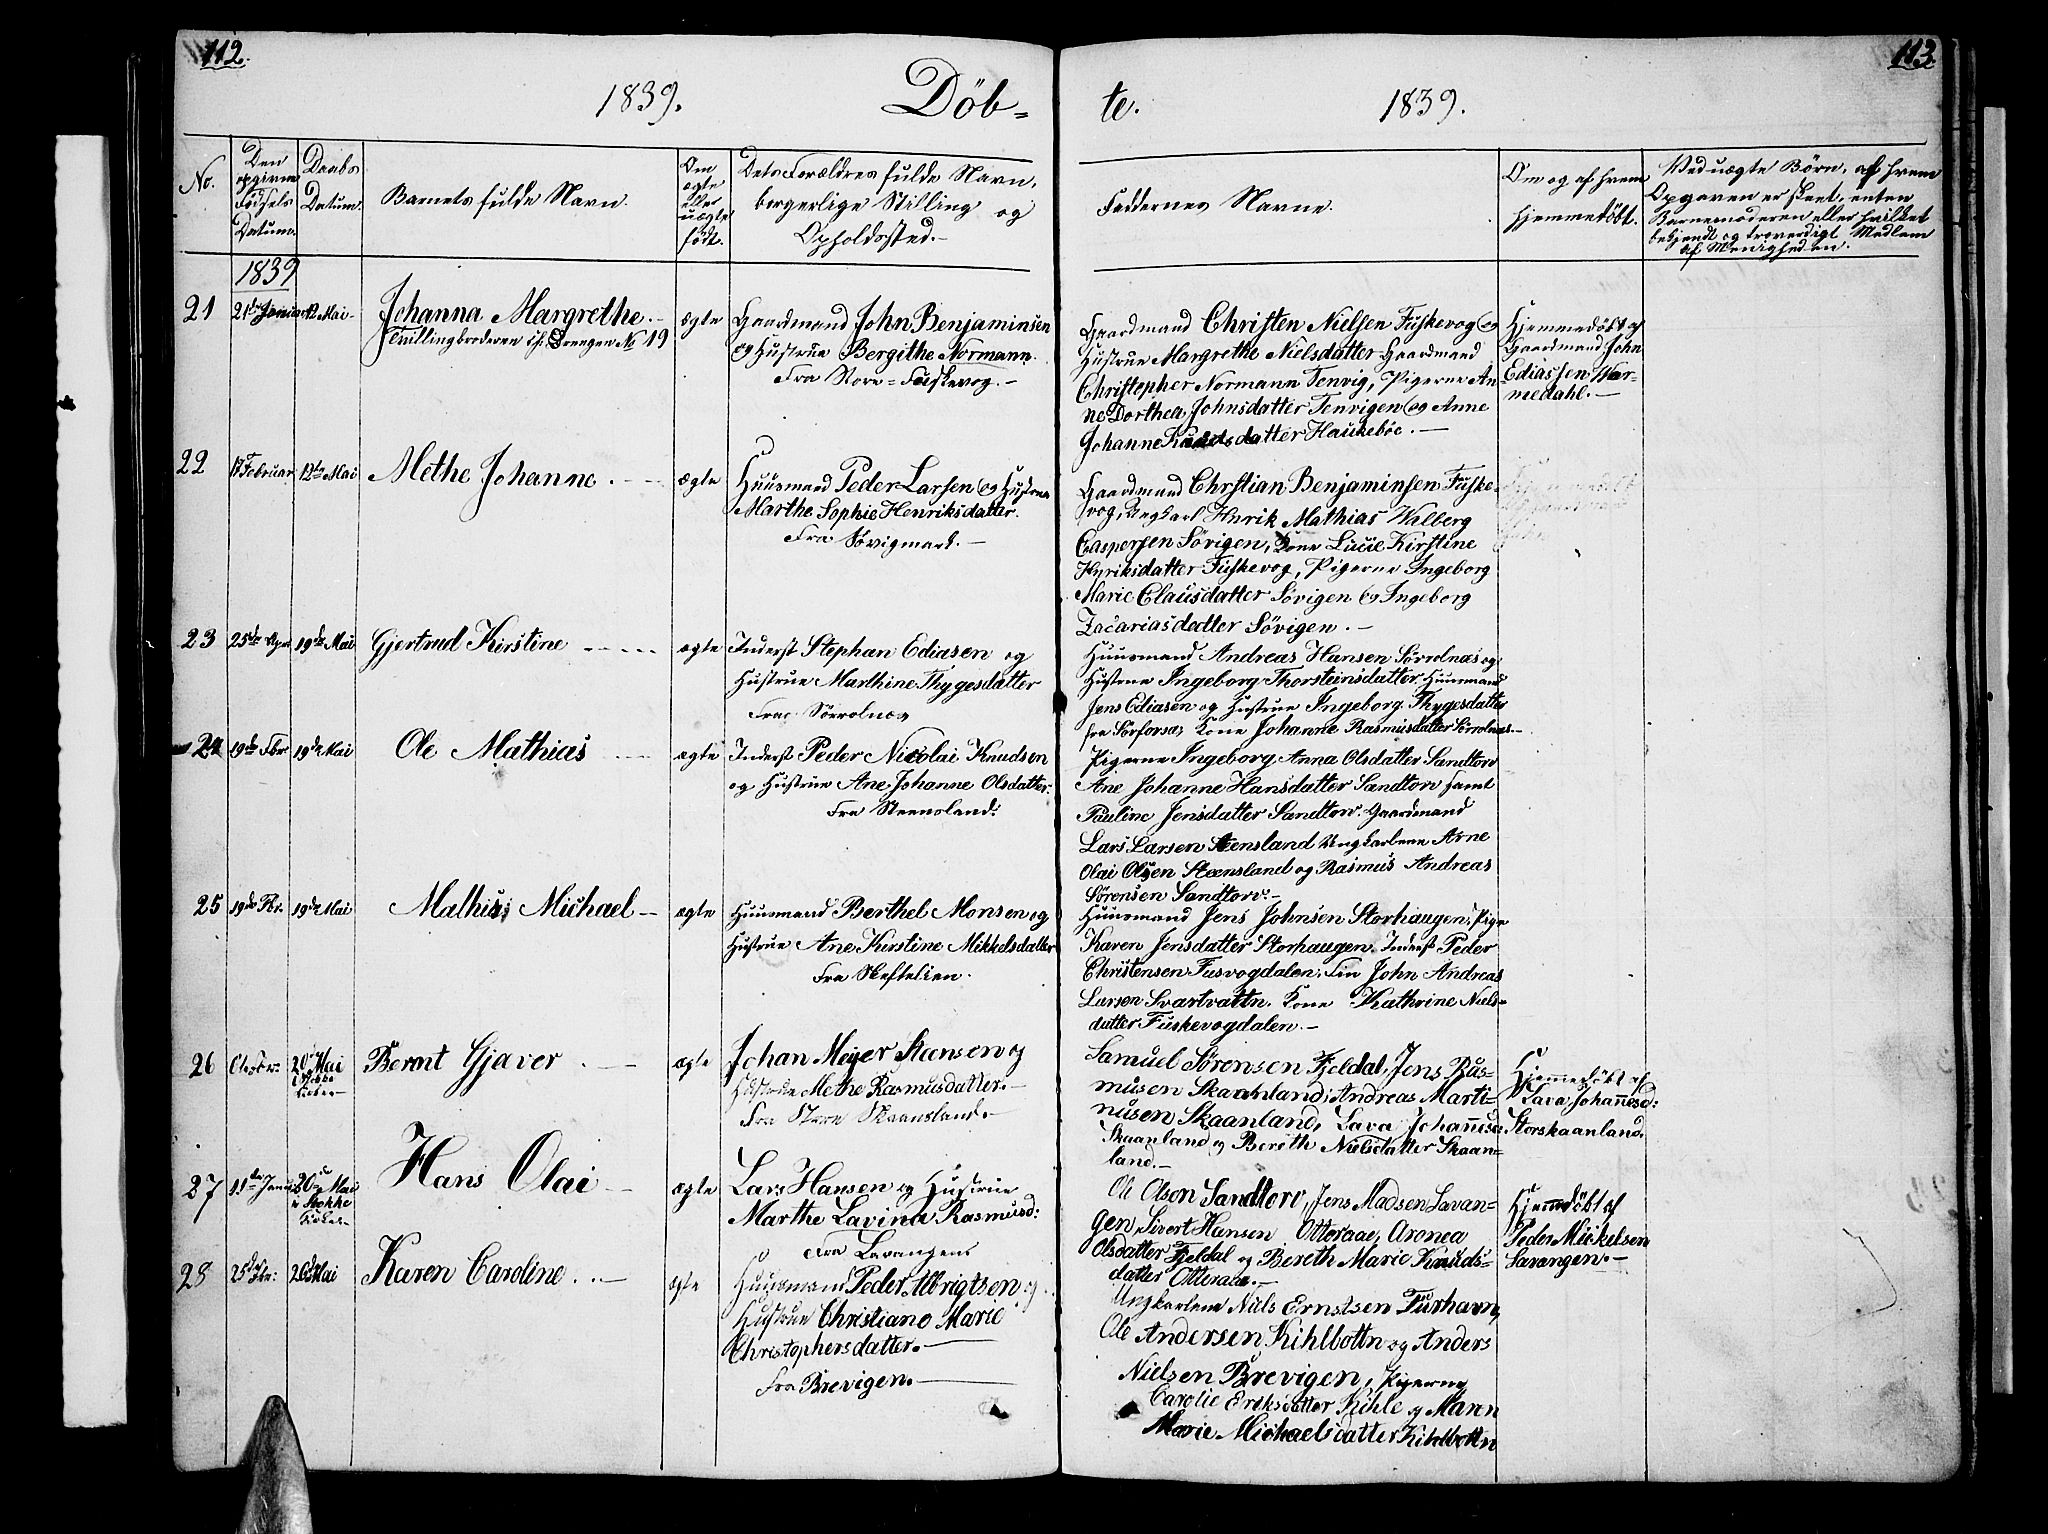 112.
113.
1839.
Döb-
te.
1839.
No.
Den
opgivne
Födsels
Datum.
Daabs
Datum.
Barnets fulde Navn.
Om
ægte
eller
uægte
født.
Dets Forældres fulde Navn,
borgerlige Stilling og
Opholdssted.-
Faddernes Navne.
Om og af hvem
hjemmedöbt.
Ved uægte Börn, af hvem
Opgaven er skeet, enten
Barnemoderen eller hvilket
bekjendt og troværdigt Medlem
af Menigheden.
1839
21
21de Januar
12 Mai-
Johanna Margrethe.-
Tvillingbroderen Drengen No 19
ægte
Gaardmand John Benjaminsen
og Hustrue Bergithe Normann.
Fra Store-Fuskevog.-
Gaardmand Christen Nielsen Fuskevog og
Hustrue Margrethe Nielsdatter Gaardmand
Christopher Normann Tenvig, Pigerne An-
ne Dorthea Johnsdatter Tenvigen og Anne
Johanne Knudsdatter Haukeböe.-
Hjemmedöbt af
Gaardmand John
Ediassen War-
medahl.-
22
Februar
12te Mai
Methe Johanne.-
ægte
Huusmand Peder Larsen og Hustrue
Marthe Sophie Henriksdatter.
Fra Sövigmark.-
Gaardmand Chrstian Benjaminsen Fuske-
vog, Ungkarl Hnrik Mathias Walberg
Caspersen Sövigen, Kone Lucie Kirstine
Hnriksdatter Fuskevog, Pigerne Ingeborg
Marie Clausdatter Sövigen og Ingeborg
Zacariasdatter Sövigen.-
23
25de Apr
19de Mai
Gjertrud Kirstine
ægte
Inderst Stephan Ediasen og
Hustrue Marthine Thygesdatter
Fra Sörrolnæs
Huusmand Andreas Hansen Sörrolnæs og
Hustrue Ingeborg Thorsteinsdatter. Huusmand
Jens Ediasen og Hustrue Ingeborg Thygesdatter
fra Sörforsa, Kone Johanne Rasmusdatter Sörrolnæs.-
24
19de Fbr
19de Mai
Ole Mathias
ægte
Inderst Peder Nicolai Knudsen
og Hustrue Ane Johanne Olsdatter:
Fra Steensland:
Pigerne Ingeborg Anna Olsdatter Sandtorv
Ane Johanne Hansdatter Sandtorv samt
Pauline Jensdatter Sandtorv. Gaardmand
Lars Larsen Steensland Ungkarlene Arne
Olai Olsen Steensland og Rasmus Andreas
Sörensen Sandtorv.-
25
19de Fbr.
19de Mai
Mathis Michael-
ægte
Huusmand Berthel Monsen og
Hustrue Ane Kirstine Mikkelsdatter
Fra Skeftelien.
Huusmand Jens Johnsen Storhaugen, Pige
Karen Jensdatter Storhaugen. Inderst Peder
Christensen Fusvogdalen. Fin John Andreas
Larsen Svartvattn. Kone Kathrine Niels-
datter Fuskevogdalen.-
26
20 Mai
Berent Gjæver.-
ægte
Johan Meyer Hansen og
Hustrue Methe Rasmusdatter.-
Fra Store Skaansland.-
Samuel Sörensen Fjeldal, Jens Ras-
musen Skaanland, Andreas Marti-
nusen Skaanland, Lava Johannesd:
Skaanland og Bereth Nielsdatter Skaan-
land.-
Hjemmedöbt af
Lava Johannesd:
Storskaanland.
27
11te Januar
20 Mai
i Stokke
Kirke-
Hans Olai-
ægte
Lars Hansen og Hustrue
Marthe Lavina Rasmusd:
Fra Lavangen
Ole Olson Sandtorv, Jens Madsen Lavan-
gen, Sivert Hansen Otteraae, Aronea
Olsdatter Fjeldal og Bereth Marie Knuds-
datter Otteraae.-
Hjemmdöbt af
Peder Mickelsen
Lavangen.-
28
25de Fbr:
20de Mai
Karen Caroline.-
ægte
Huusmand Peder Albrigtsen og
Hustrue Christiane Marie
Christophersdatter.-
Fra Brevigen.-
Ungkarlene Niels Ernstsen Furhavn,
Ole Andersen Kihlbottn og Anders
Nielsen Brevigen, Pigerne
Carolie Eriksdatter Kihle og Marn
Marie Michaelsdatter Kihlbottn